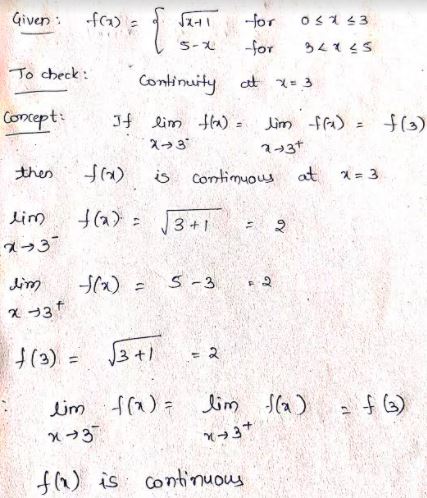 Given : f(x) = { √x+1 for 0 ≤ x ≤ 3
5-x for 3 < x ≤ 5
To check : Continuity at x = 3
Concept : If lim f(x) = lim f(x) = f(3)
x→3⁻ x→3⁺
then f(x) is continuous at x = 3
lim f(x) = √3+1 = 2
x→3⁻
lim f(x) = 5-3 = 2
x→3⁺
f(3) = √3+1 = 2
: lim f(x) = lim f(x) = f(3)
x→3⁻ x→3⁺
f(x) is continuous